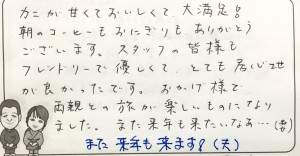 カニが甘くておいしくて、大満足!
朝のコーヒーもおにぎりも ありがとう
ございます。スタッフの皆様も
フレンドリーで優しくて、とても居心地
が良かったです。おかげ様で
両親との旅が楽しいものになり
ました。また来年も来たいなぁ…(妻)
また来年も来ます!(夫)